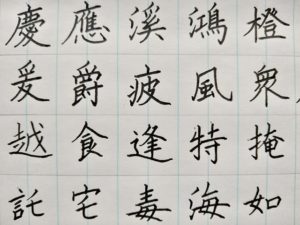 慶應溪鴻橙
爰爵疲風衆
越食逢特掩
託宅毒海如